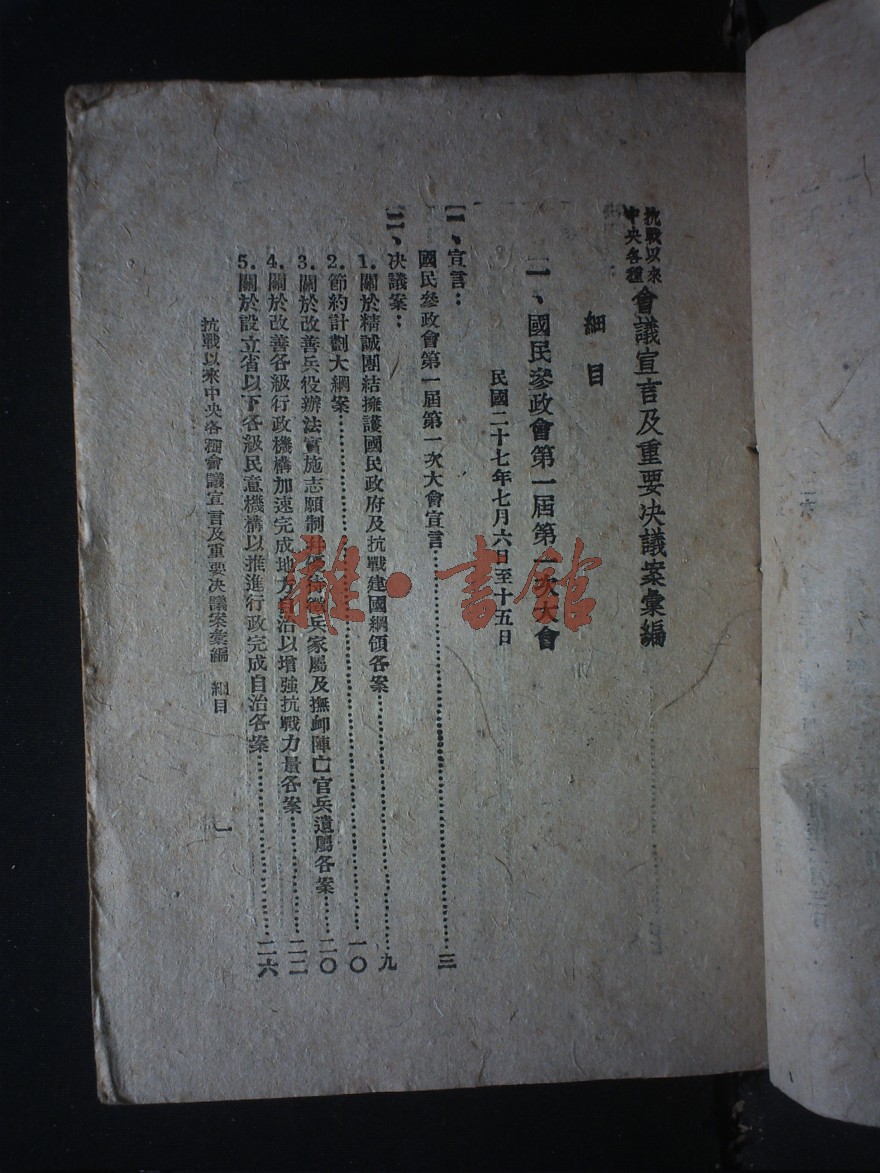 抗戰以來
中央各種
會議宣言及重要决議案彙編
細目
一、國民參政會第一屆第一次大會
民國二十七年七月六日至十五日
一、宣言：
國民參政會第一屆第一次大會宣言……三
二、决議案：
1.關於精誠團結擁護國民政府及抗戰建國綱領各案……九
2.節約計劃大綱案……一〇
3.關於改善兵役辦法實施志願制并優待徵兵家屬及撫卹陣亡官兵遺屬各案……二〇
4.關於改善各級行政機構加速完成地方自治以增強抗戰力量各案……二二
5.關於設立省以下各級民意機構以推進行政完成自治各案……二六
抗戰以來中央各種會議宣言及重要决議案彙編　細目
一
雜·書館